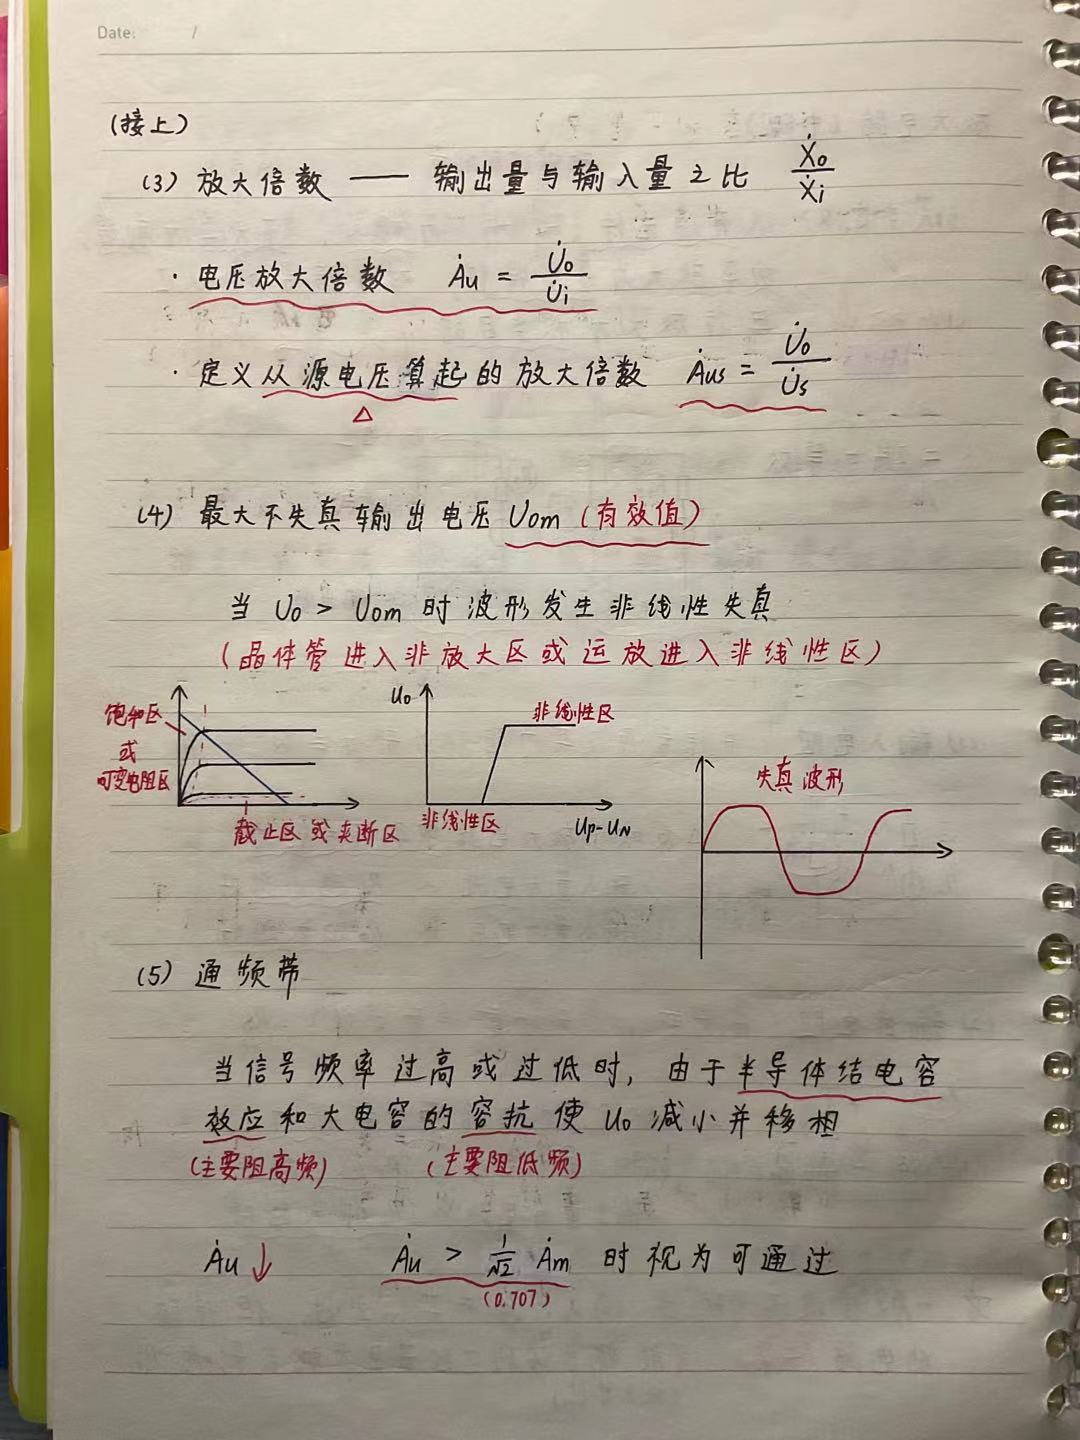 Date: /
(接上)
(3) 放大倍数 —— 输出量与输入量之比 Ẋo/Ẋi
· 电压放大倍数 Ȧu = U̇o/U̇i
· 定义从源电压算起的放大倍数 Ȧus = U̇o/U̇s
△
(4) 最大不失真输出电压 Uom (有效值)
当 Uo > Uom 时波形发生非线性失真
(晶体管进入非放大区或运放进入非线性区)
饱和区
或
可变电阻区
截止区或夹断区
Uo
非线性区
非线性区
Up-UN
失真波形
(5) 通频带
当信号频率过高或过低时, 由于半导体结电容
效应和大电容的容抗使 Uo 减小并移相
(主要阻高频) (主要阻低频)
Ȧu ↓ Ȧu > 1/√2 Ȧm 时视为可通过
(0.707)